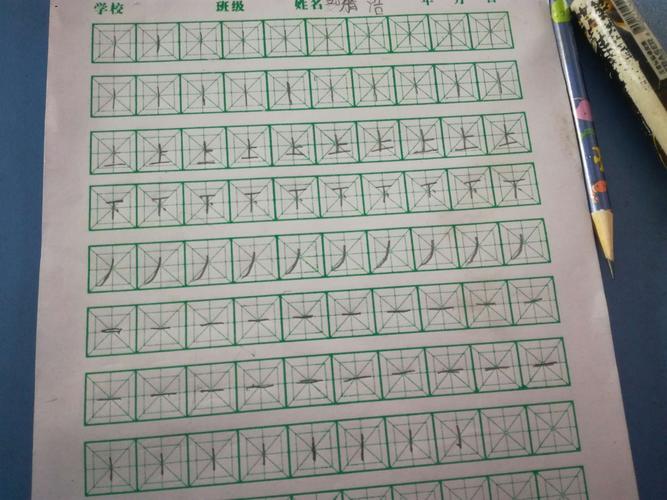 学校 班级 姓名 浩 年 月 日
丨 丨 丨 丨 丨 丨 丨 丨 丨 丨
丨 丨 丨 丨 丨 丨 丨 丨 丨 丨
上 上 上 上 上 上 上 上 上 上
下 下 下 下 下 下 下 下 下 下
丿 丿 丿 丿 丿 丿 丿 丿 丿 丿
一 一 一 一 一 一 一 一 一 一
一 一 一 一 一 一 一 一 一 一
丨 丨 丨 丨 丨 丨 丨 丨